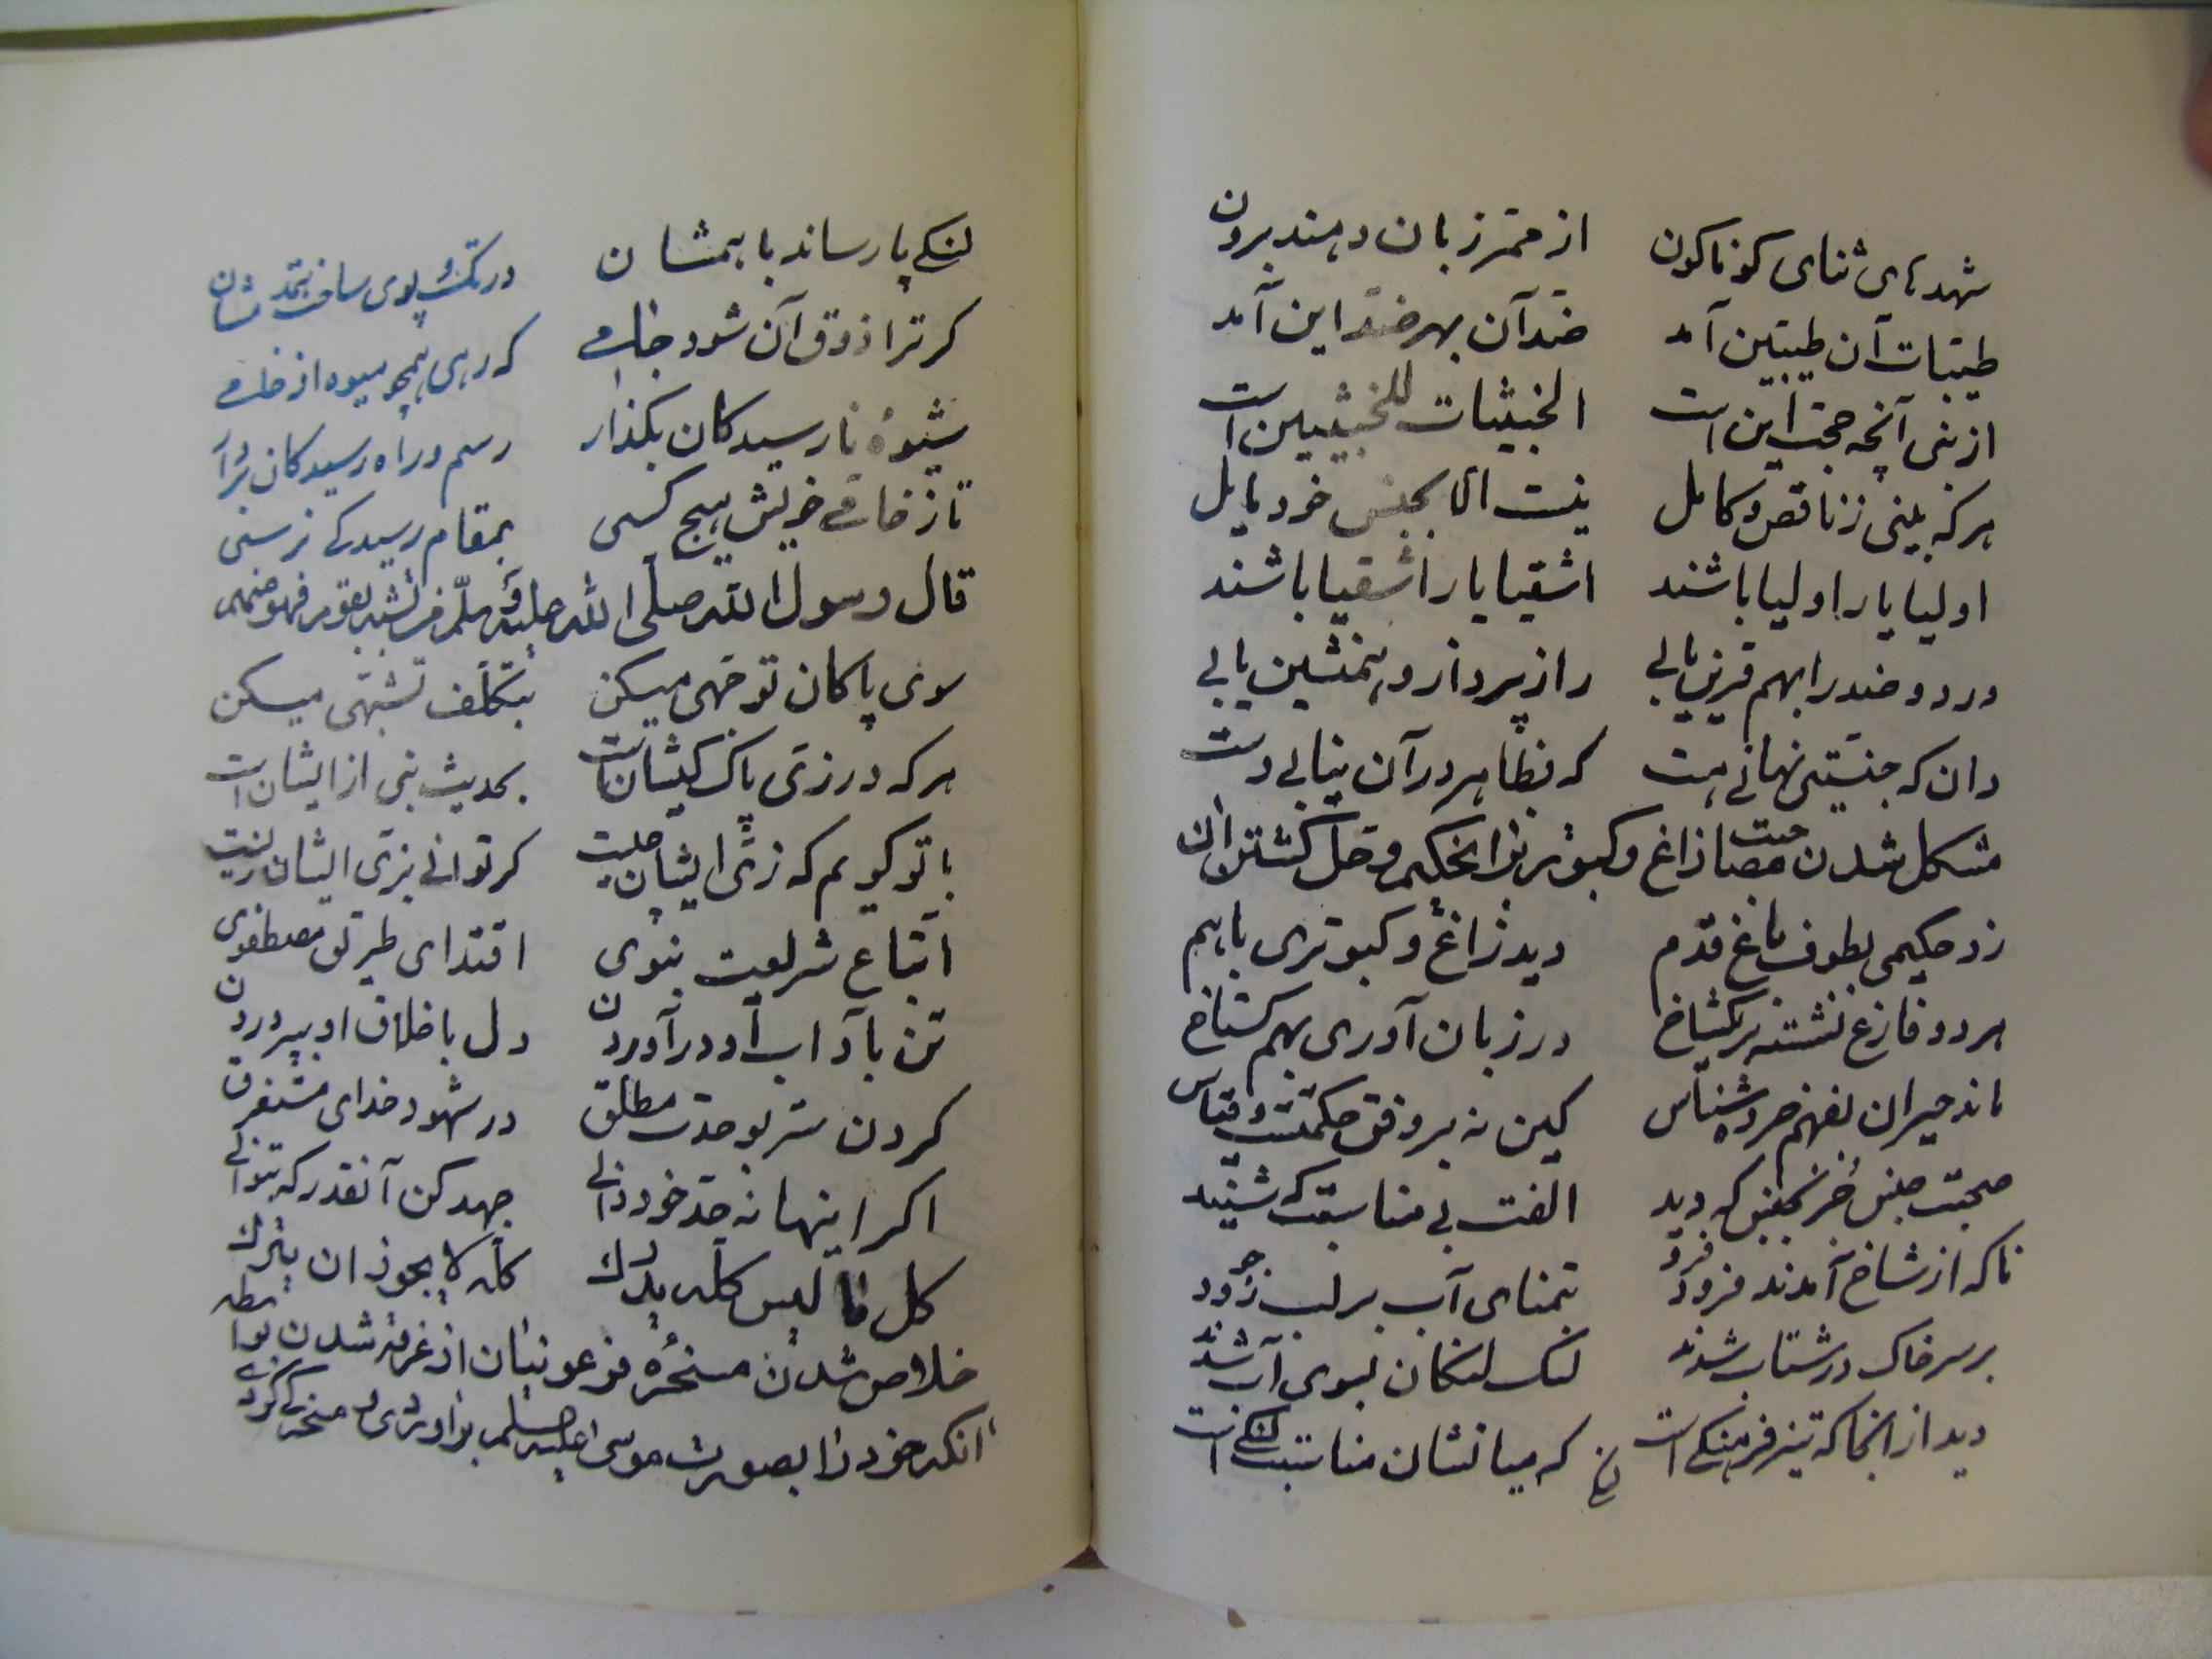 شهدهای ثنای کوناکون از ممر زبان دهند برون
طیبات آن طیبین آمد ضد آن بهر ضد این آمد
از نبی آنچه حجت این است الخبیثات للخبیثین است
هر که بینی ز ناقص و کامل نیست الا بجنس خود مایل
اولیا یار اولیا باشند اشقیا یار اشقیا باشند
ور دو ضد را بهم قرین یابی راز پرداز و همنشین یابی
دان که جنسیتی نهانی هست که بظاهر در آن نیابی دست
مشکل شدن مصاحبت زاغ و کبوتر بر آن حکیم و حل کشتن آن
زد حکیمی بطوف باغ قدم دید زاغ و کبوتری باهم
هر دو فارغ نشسته بر یکشاخ در زبان آوری بهم کستاخ
ماند حیران بفهم خرده شناس کین نه بر وفق حکمتست و قیاس
صحبت جنس جز بجنس که دید الفت بی مناسبت که شنید
ناکه از شاخ آمدند فرود بتمنای آب بر لب رود
بر سر خاک در شتاب شدند لنک لنکان بسوی آب شدند
دید از انجا که تیز فرهنکی است که میانشان مناسبت لنکی است
لنکی پا رساند باهمشان در تک و پوی ساخت همدمشان
کر ترا ذوق آن شود خامی که رهی همچو میوه از خامی
شیوه نارسیدکان بکذار رسم و راه رسیدکان بردار
تا ز خامی خویش هیچ کسی بمقام رسیدکی نرسی
قال رسول الله صلی الله علیه و سلم من تشبه بقوم فهو منهم
سوی پاکان توجهی میکن بتکلف تشبهی میکن
هر که در زی پاک کیشانست بحدیث نبی از ایشان است
با تو کویم که زی ایشان چیست کر توانی بزی ایشان زیست
اتباع شریعت نبوی اقتدای طریق مصطفوی
تن باداب او در آوردن دل باخلاق او بپروردن
کردن سر بوحدت مطلق در شهود خدای مستغرق
اکر اینها نه حد خود دانی جهد کن آنقدر که بتوانی
کل ما لیس کله یدرک کله لا یجوز ان یترک
خلاص شدن مسخره فرعونیان از غرقه شدن بواسطه
آنکه خود را بصورت موسی علیه السلم بر آوردی و مسخرکی کردی